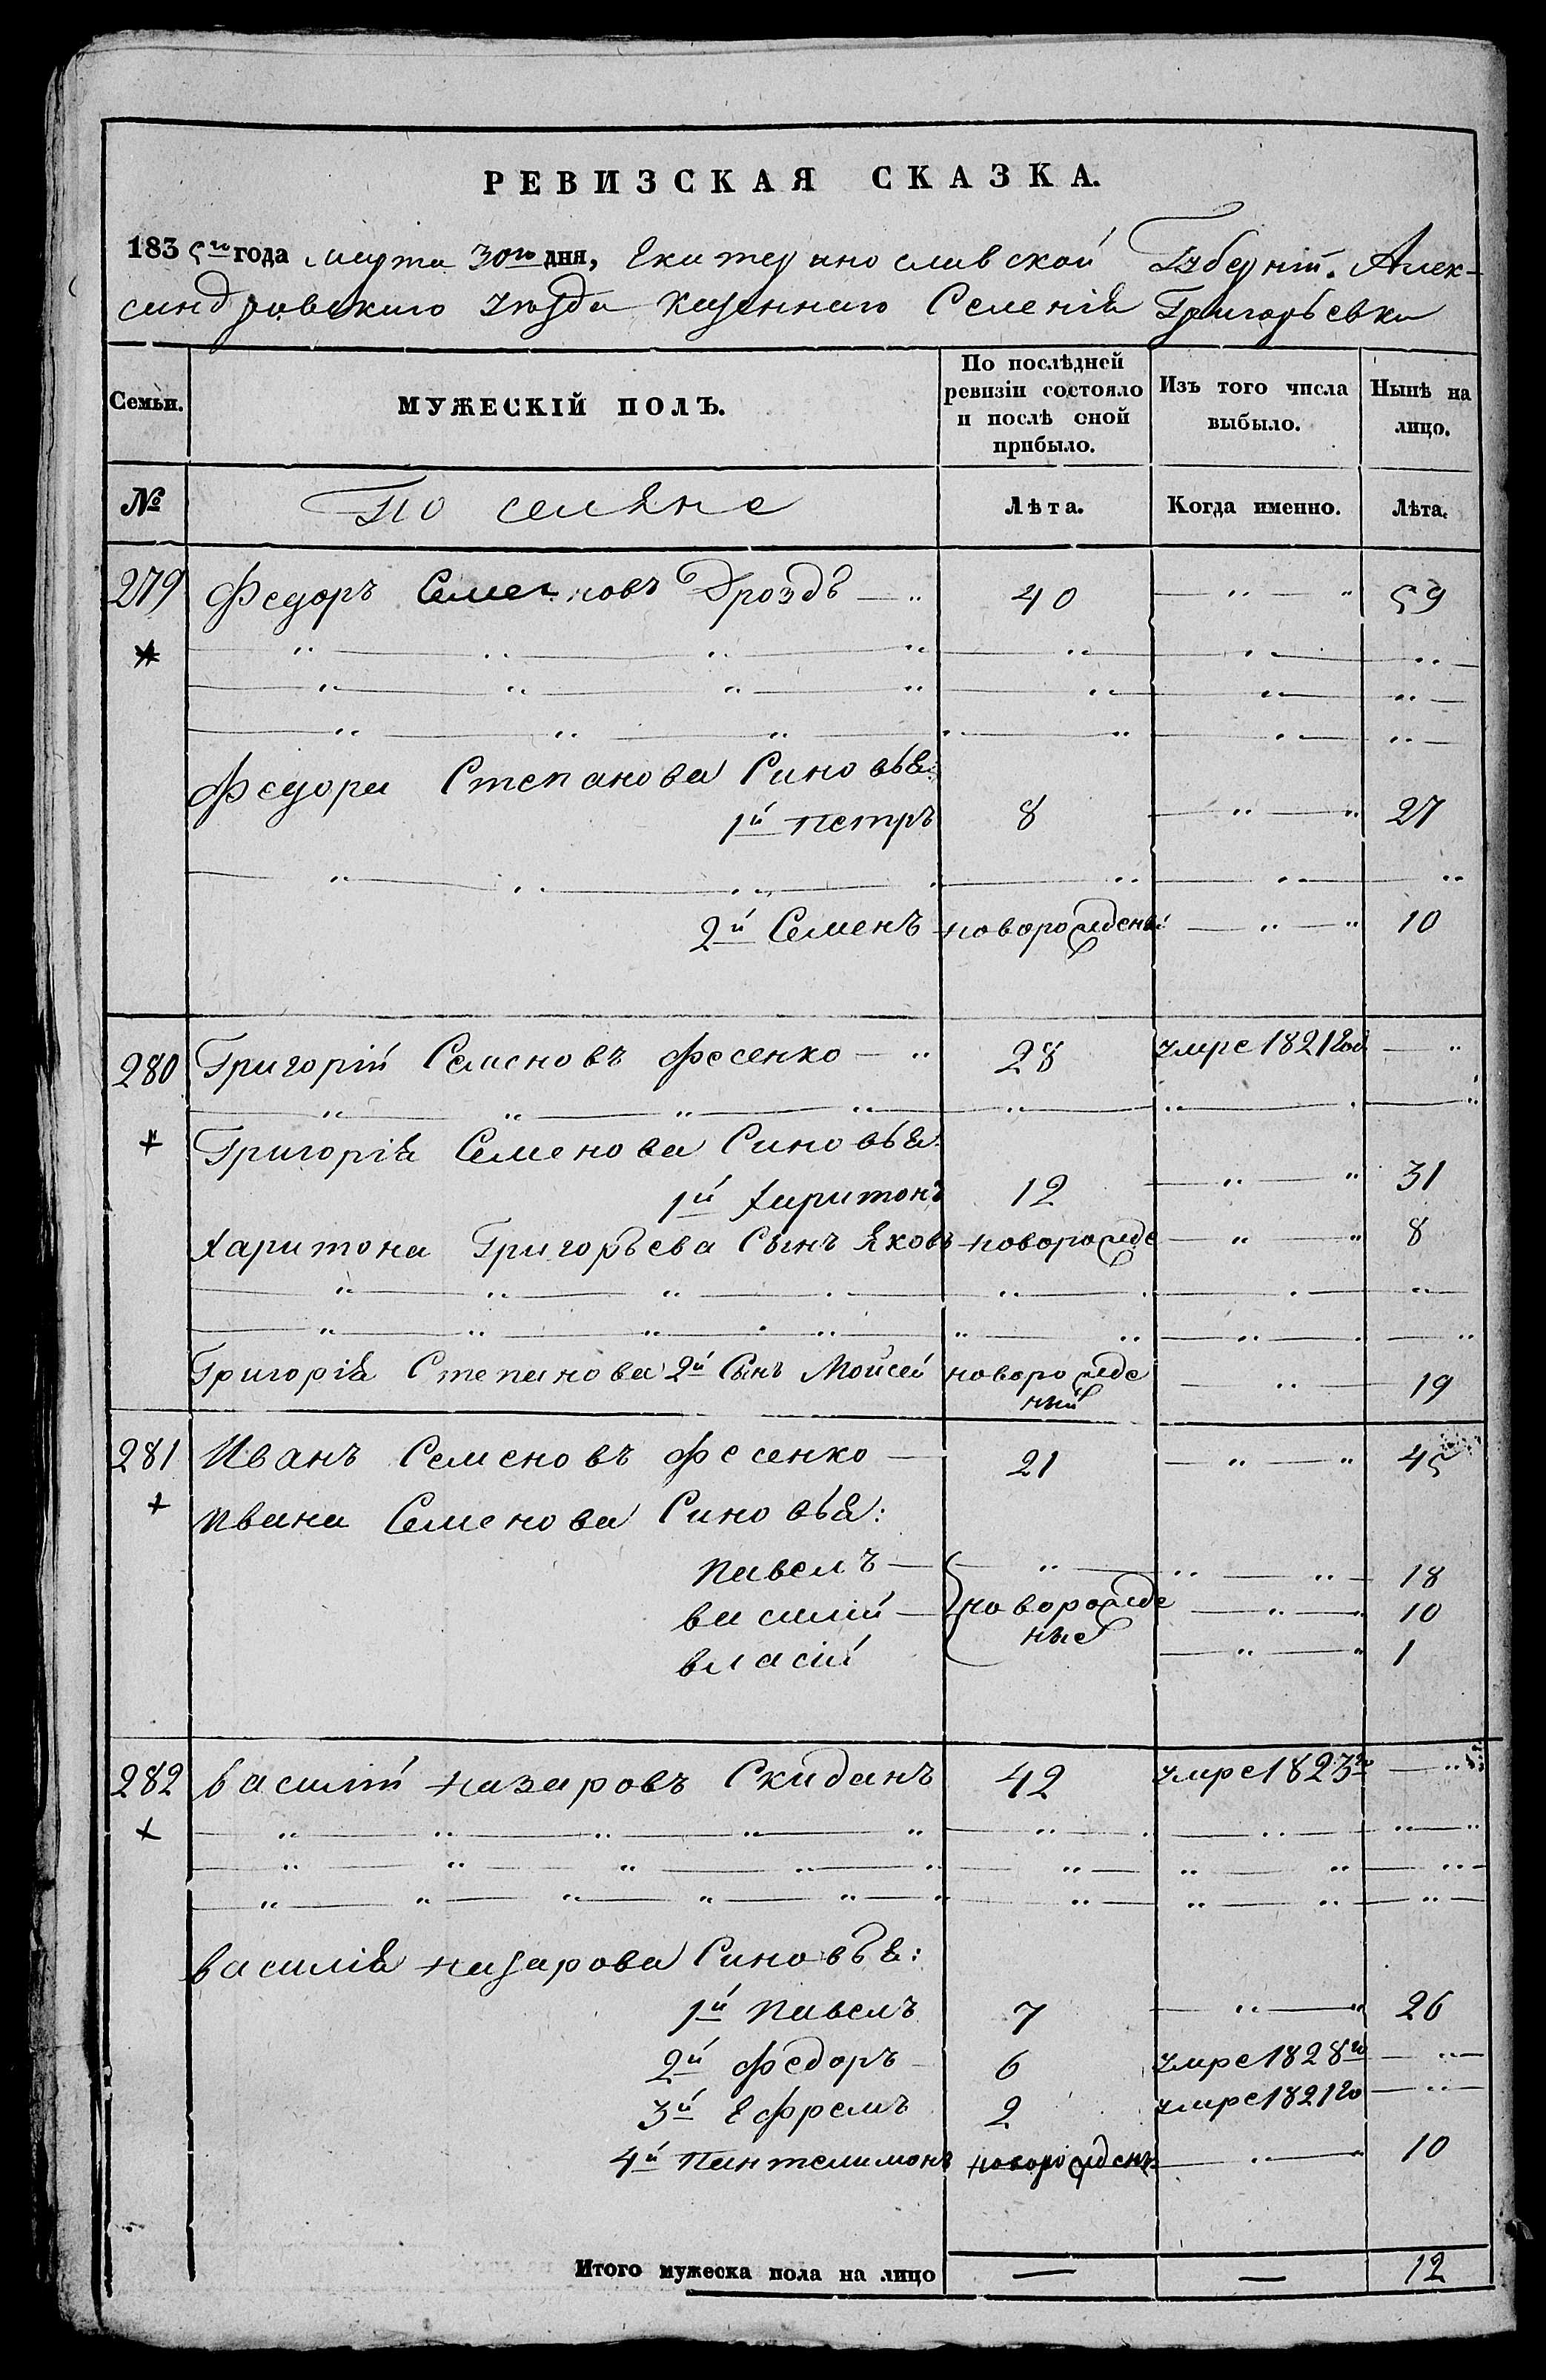 РЕВИЗСКАЯ СКАЗКА.
1835го года марта 30го дня, Екатеринославской Губерніи. Алек-
сандровскаго уезда казеннаго Селенія Григорьевки
Семьи. МУЖЕСКІЙ ПОЛЪ. По послѣдней ревизіи состояло и послѣ оной прибыло. Изъ того числа выбыло. Нынѣ на лицо.
№ Поселяне Лѣта. Когда именно. Лѣта.
279 Федоръ Семеновъ Дроздъ — „ 40 — „ — „ 59
Федора Степанова Синовья:
1й Петръ 8 — „ — „ 27
2й Семенъ новорожденый — „ — „ 10
280 Григорій Семеновъ Фесенко — „ 28 умре 1821 год — „
Григорія Семенова Синовья:
1й Харитонъ 12 — „ — „ 31
Харитона Григорьева Сынъ Яковъ новорожде — „ — „ 8
Григорія Степанова 2й Сынъ Мойсей новорожде
ный — „ — 19
281 Иванъ Семеновъ Фесенко — 21 — „ — „ 45
Ивана Семенова Синовья:
Павелъ — — „ — „ — „ 18
Василій — новорожде — „ — „ 10
Власій ные — „ — „ 1
282 Василій Назаровъ Скиданъ 42 умре 1823го — „
Василія Назарова Синовья:
1й Павелъ 7 — „ — „ 26
2й Федоръ 6 умре 1828го — „ —
3й Ефремъ 2 умре 1821го — „ —
4й Пантелимонъ новорожденъ — „ — „ 10
Итого мужеска пола на лицо — — 12